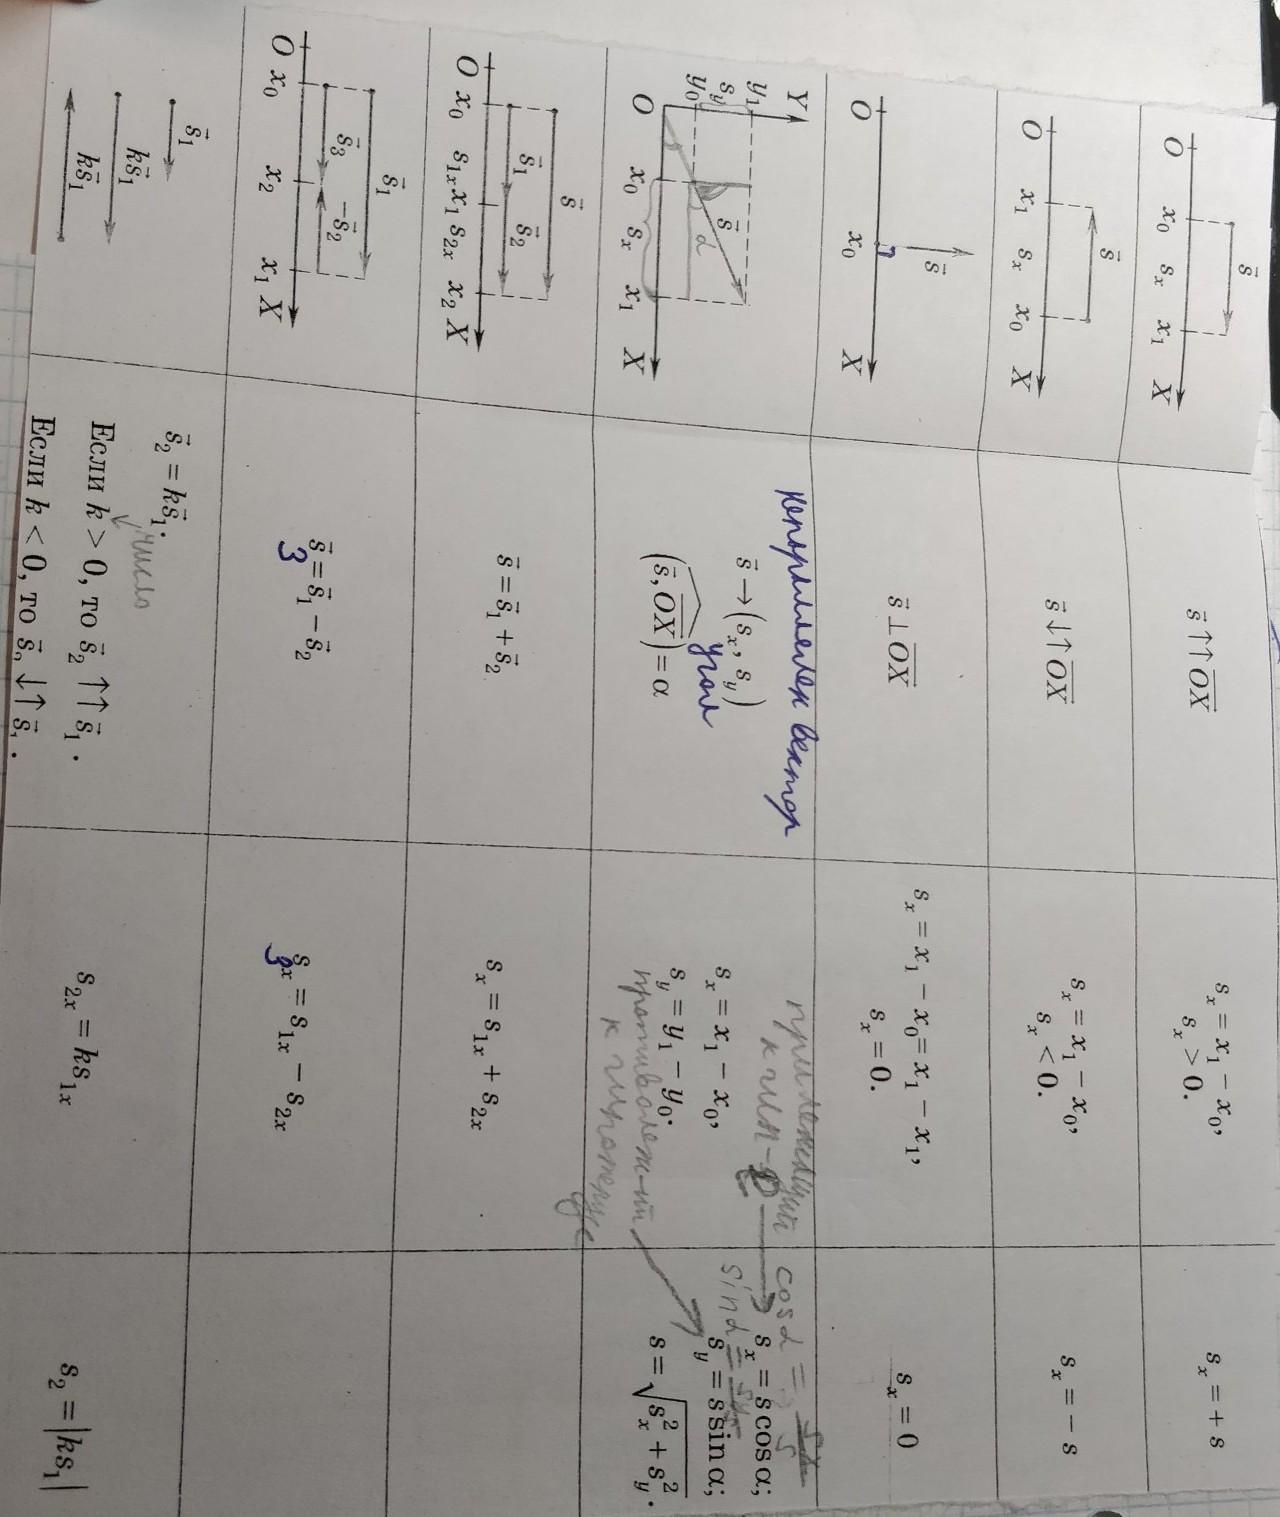 O x₀ sₓ x₁ X
s⃗
s⃗ ↑↑ OX
sₓ = x₁ − x₀,
sₓ > 0.
sₓ = + s
O x₁ sₓ x₀ X
s⃗
s⃗ ↓↑ OX
sₓ = x₁ − x₀,
sₓ < 0.
sₓ = − s
O x₀ X
s⃗
s⃗ ⊥ OX
sₓ = x₁ − x₀ = x₁ − x₁,
sₓ = 0.
sₓ = 0
Y
y₁
s_y
y₀
s⃗
α
O x₀ sₓ x₁ X
вектор
s⃗ → (sₓ, s_y)
угол
(s⃗, OX) = α
прилежащий
к гип-
sₓ = x₁ − x₀,
s_y = y₁ − y₀.
противолеж-ий
к гипотенузе
cosα = sₓ/s
sₓ = s cos α;
sinα =
s_y = s sin α;
s = √(sₓ² + s_y²).
s⃗
s⃗₁ s⃗₂
O x₀ s₁ₓ x₁ s₂ₓ x₂ X
s⃗ = s⃗₁ + s⃗₂
sₓ = s₁ₓ + s₂ₓ
s⃗₁
s⃗₃ −s⃗₂
O x₀ x₂ x₁ X
s⃗ = s⃗₁ − s⃗₂
3
sₓ = s₁ₓ − s₂ₓ
3
s⃗₁
ks⃗₁
ks⃗₁
s⃗₂ = ks⃗₁.
число
Если k > 0, то s⃗₂ ↑↑ s⃗₁.
Если k < 0, то s⃗₂ ↓↑ s⃗₁.
s₂ₓ = ks₁ₓ
s₂ = |ks₁|